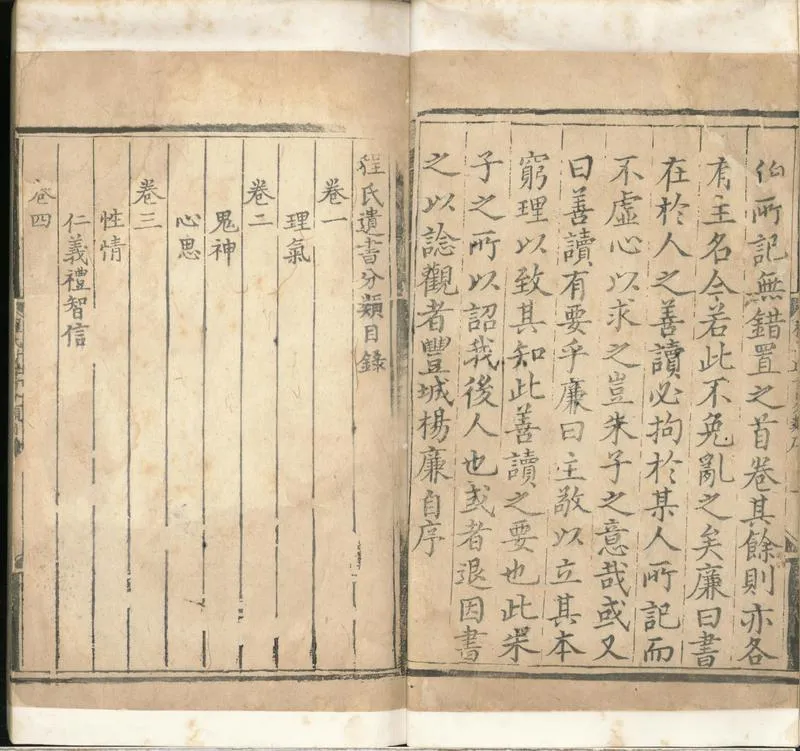 伯所記無錯置之首卷其餘則亦各
有主名今若此不免亂之矣廉曰書
在於人之善讀必拘於某人所記而
不虛心以求之豈朱子之意哉或又
曰善讀有要乎廉曰主敬以立其本
窮理以致其知此善讀之要也此朱
子之所以詔我後人也或者退因書
之以諗觀者豐城楊廉自序
程氏遺書分類目錄
卷一
理氣
卷二
鬼神
心思
卷三
性情
仁義禮智信
卷四